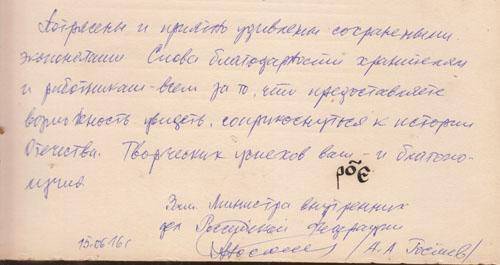 Потрясены и приятно удивлены сохраненными
экспонатами Слова благодарности хранителям
и работникам – всем за то, что предоставляете
возможность увидеть, соприкоснуться к истории
Отечества. Творческих успехов вам – и благопо-
лучия
Зам. Министра внутренних
дел Российской Федерации
15.06.16 г. /А.А. Гостев/